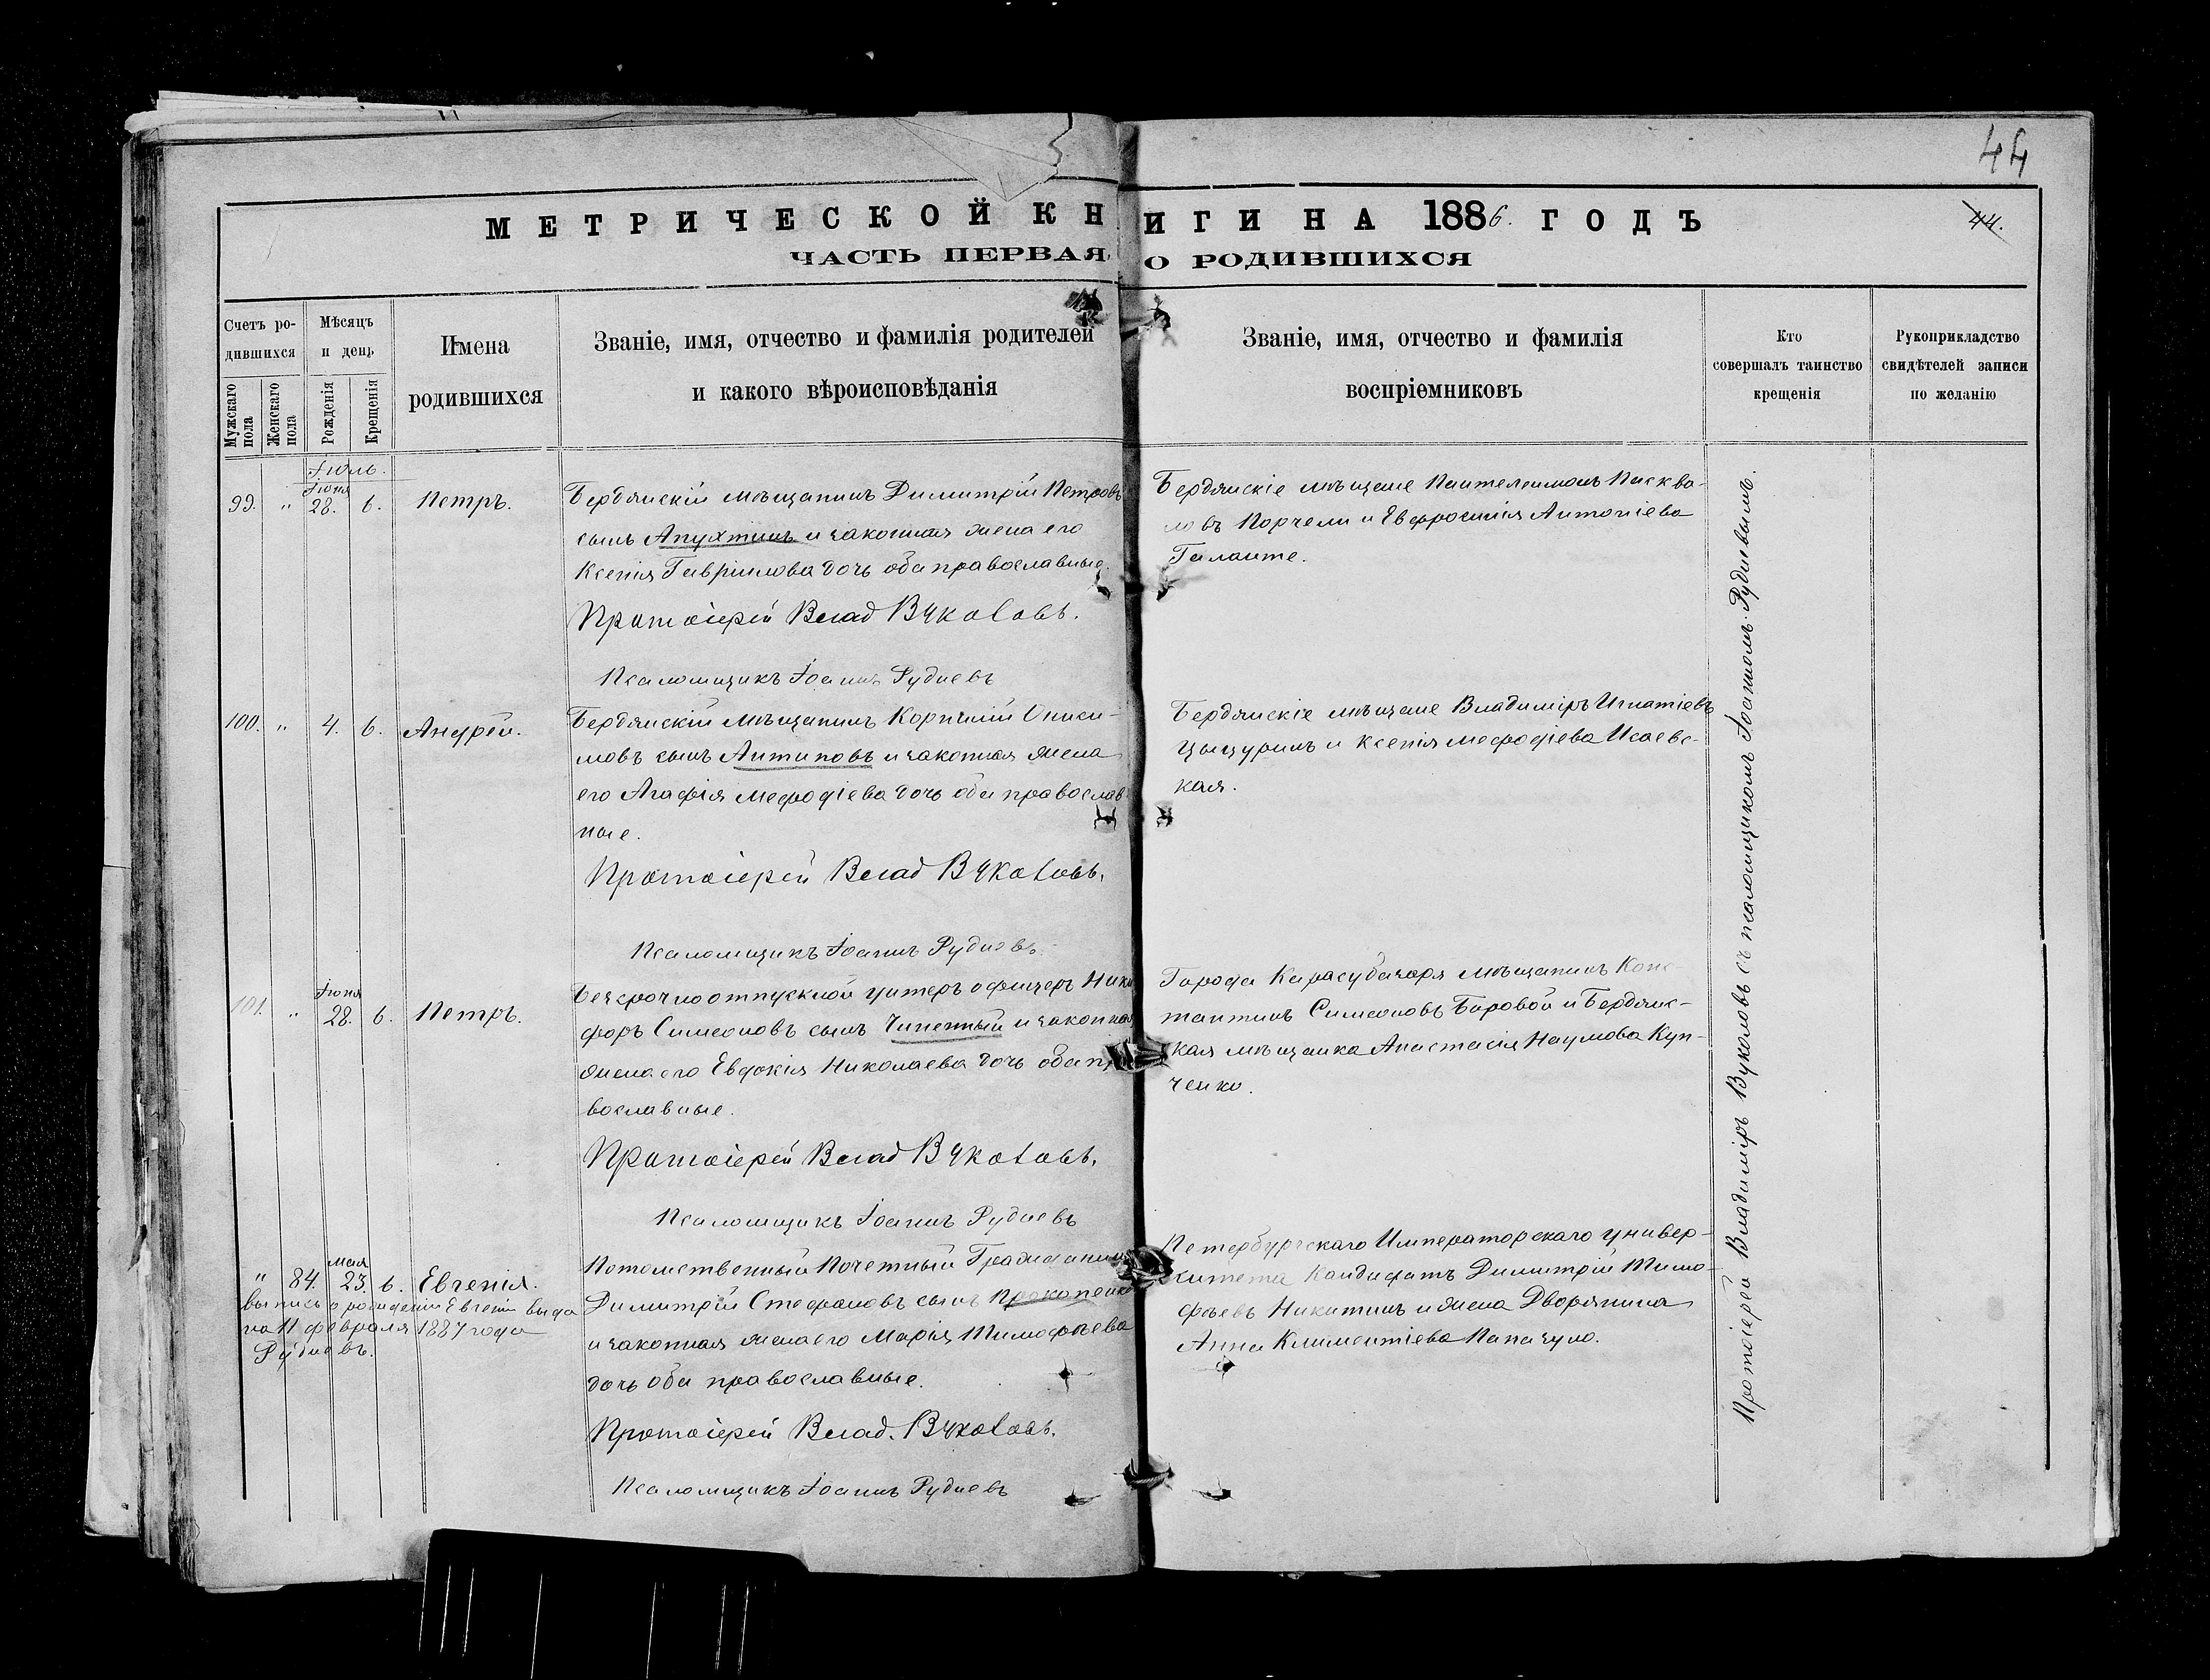 44
МЕТРИЧЕСКОЙ КНИГИ НА 1886. ГОДЪ
44.
ЧАСТЬ ПЕРВАЯ, О РОДИВШИХСЯ
Счетъ ро-
дившихся
Мужскаго пола
Женскаго пола
Мѣсяцъ
и день
Рожденія
Крещенія
Имена
родившихся
Званіе, имя, отчество и фамилія родителей
и какого вѣроисповѣданія
Званіе, имя, отчество и фамилія
воспріемниковъ
Кто
совершалъ таинство
крещенія
Рукоприкладство
свидѣтелей записи
по желанію
Іюль.
99. " Іюня 28. 6. Петръ.
Бердянскій мѣщанинъ Димитрій Петровъ
сынъ Апухтинъ и законная жена его
Ксенія Гавріилова дочь оба православные.
Протоіерей Влад Вуколовъ.
Псаломщикъ Іоаннъ Рудневъ
Бердянскіе мѣщане Пантелеимонъ Пасква-
ловъ Порчели и Евфросинія Антоніева
Галанте.
100. " 4. 6. Андрей.
Бердянскій мѣщанинъ Корнилій Ониси-
мовъ сынъ Антиповъ и законная жена
его Агафія Мефодіева дочь оба православ-
ные.
Протоіерей Влад Вуколовъ.
Псаломщикъ Іоаннъ Рудневъ
Бердянскіе мѣщане Владиміръ Игнатіевъ
Цыцуринъ и Ксенія Мефодіева Исаевс-
кая.
101. " Іюня 28. 6. Петръ.
Безсрочноотпускной унтеръ офицеръ Ники
форъ Симеоновъ сынъ Чипенный и законная
жена его Евдокія Николаева дочь оба пр
вославные.
Протоіерей Влад Вуколовъ.
Псаломщикъ Іоаннъ Рудневъ
Города Карасубазара мѣщанинъ Конс-
тантинъ Симеоновъ Боровой и Бердянс-
кая мѣщанка Анастасія Наумова Куп-
ченко.
" 84. мая 23. 6. Евгенія.
выпись о рожденіи Евгеніи выда
на 11 февраля 1887 года
Рудневъ.
Потомственный Почетный Гражданинъ
Димитрій Стефановъ сынъ Прокопенко
и законная жена его Марія Тимофѣева
дочь оба православные.
Протоіерей Влад. Вуколовъ.
Псаломщикъ Іоаннъ Рудневъ
Петербургскаго Императорскаго универ-
ситета Кандидатъ Димитрій Тимо-
фѣевъ Никитинъ и жена Дворянина
Анна Климентіева
Протоіерей Владиміръ Вуколовъ съ псаломщикомъ Іоанномъ Рудневымъ.